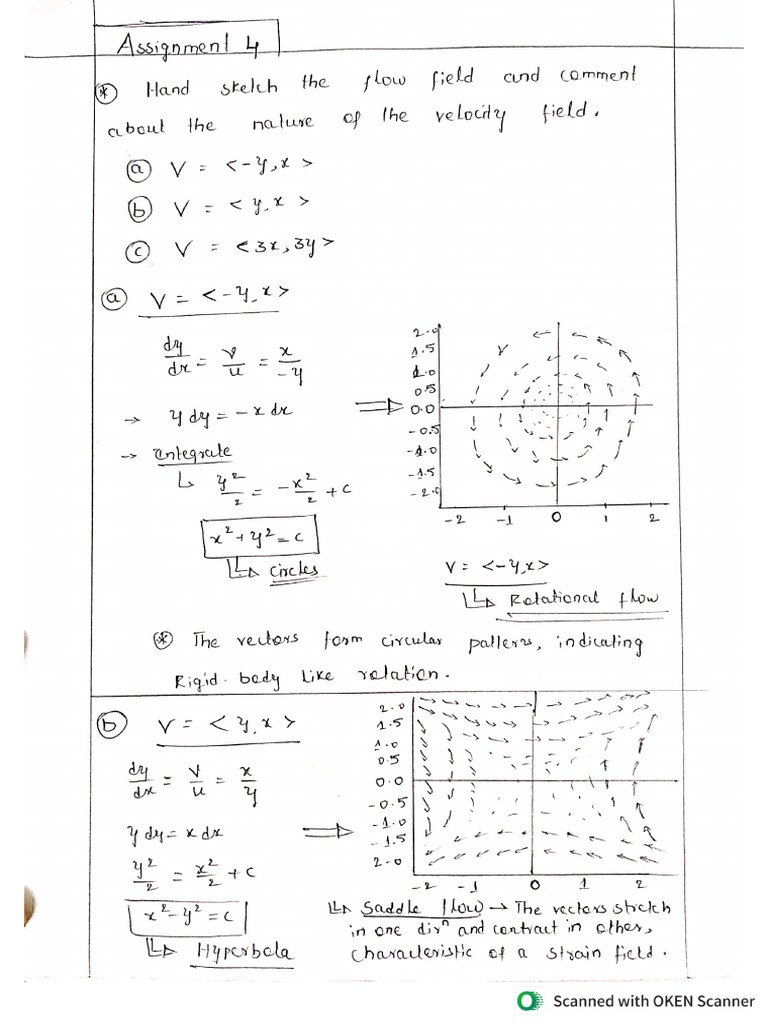 Assignment 4
* Hand sketch the flow field and comment
about the nature of the velocity field.
a V = <-y,x>
b V = <y,x>
c V = <3x,3y>
a V = <-y,x>
dy/dx = v/u = x/-y
→ y dy = -x dx
→ Integrate
↳ y²/2 = -x²/2 + c
x²+y²=c
↳ circles
2.0
1.5
1.0
0.5
0.0
-0.5
-1.0
-1.5
-2.0
-2 -1 0 1 2
V = <-y,x>
↳ Rotational flow
* The vectors form circular patterns, indicating
Rigid-body like rotation.
b V = <y,x>
dy/dx = v/u = x/y
y dy = x dx
y²/2 = x²/2 + c
x²-y²=c
↳ Hyperbola
2.0
1.5
1.0
0.5
0.0
-0.5
-1.0
-1.5
2.0
-2 -1 0 1 2
↳ Saddle flow → The vectors stretch
in one dirⁿ and contract in other,
characteristic of a strain field.
Scanned with OKEN Scanner